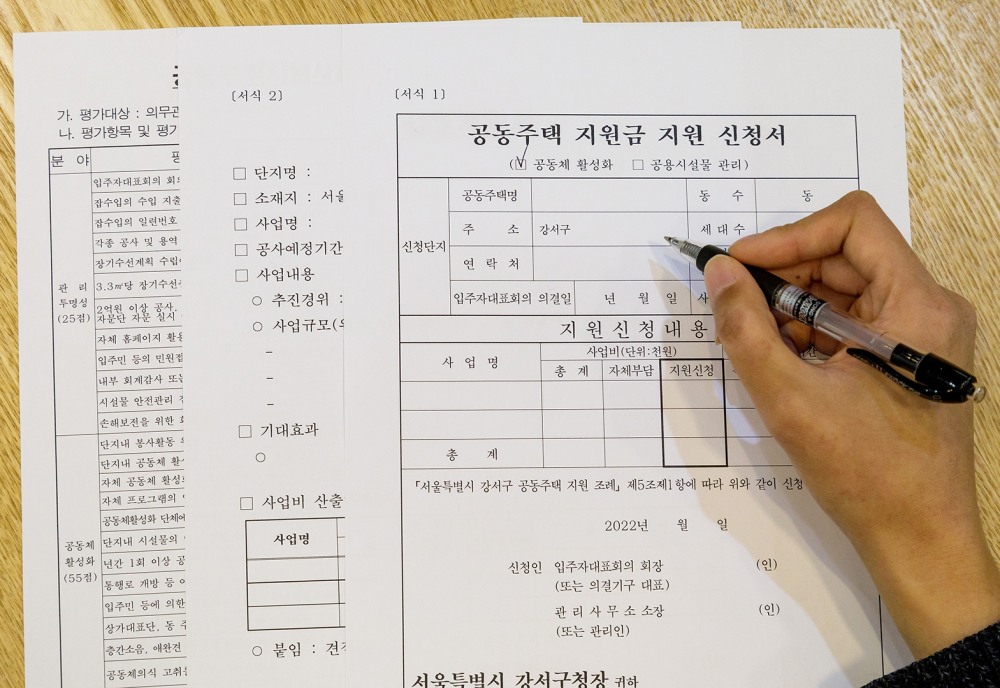 가. 평가대상 : 의무관
나. 평가항목 및 평가
분 야
관 리
투명성
(25점)
입주자대표회의 회의
잡수입의 수입 지출
잡수입의 일련번호
각종 공사 및 용역
장기수선계획 수립
3.3㎡당 장기수선
2억원 이상 공사,
자문단 자문 실시
자체 홈페이지 활용
입주민 등의 민원접
내부 회계감사 또는
시설물 안전관리
손해보전을 위한
공동체
활성화
(55점)
단지내 봉사활동
단지내 공동체 활
자체 공동체 활성화
자체 프로그램의
공동체활성화 단체에
단지내 시설물의
년간 1회 이상 공
통행로 개방 등
입주민 등에 의한
상가대표단, 동
층간소음, 애완견
공동체의식 고취
〔서식 2〕
□ 단지명 :
□ 소재지 : 서울
□ 사업명 :
□ 공사예정기간
□ 사업내용
○ 추진경위 :
○ 사업규모(
–
–
–
□ 기대효과
○
□ 사업비 산출
사업명
○ 붙임 : 견적
〔서식 1〕
공동주택 지원금 지원 신청서
(☑ 공동체 활성화 □ 공용시설물 관리)
신청단지
공동주택명 동 수 동
주 소 강서구 세 대 수
연 락 처
입주자대표회의 의결일 년 월 일 사
지 원 신 청 내 용
사 업 명 사업비(단위:천원)
총 계 자체부담 지원신청
총 계
「서울특별시 강서구 공동주택 지원 조례」 제5조제1항에 따라 위와 같이 신청
2022년 월 일
신청인 입주자대표회의 회장 (인)
(또는 의결기구 대표)
관 리 사 무 소 소장 (인)
(또는 관리인)
서울특별시 강서구청장 귀하